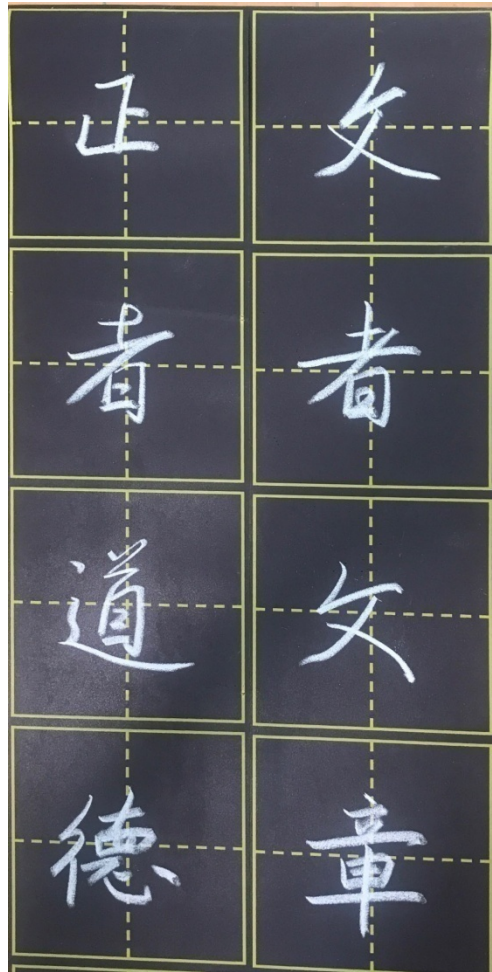 文者文章
正者道德